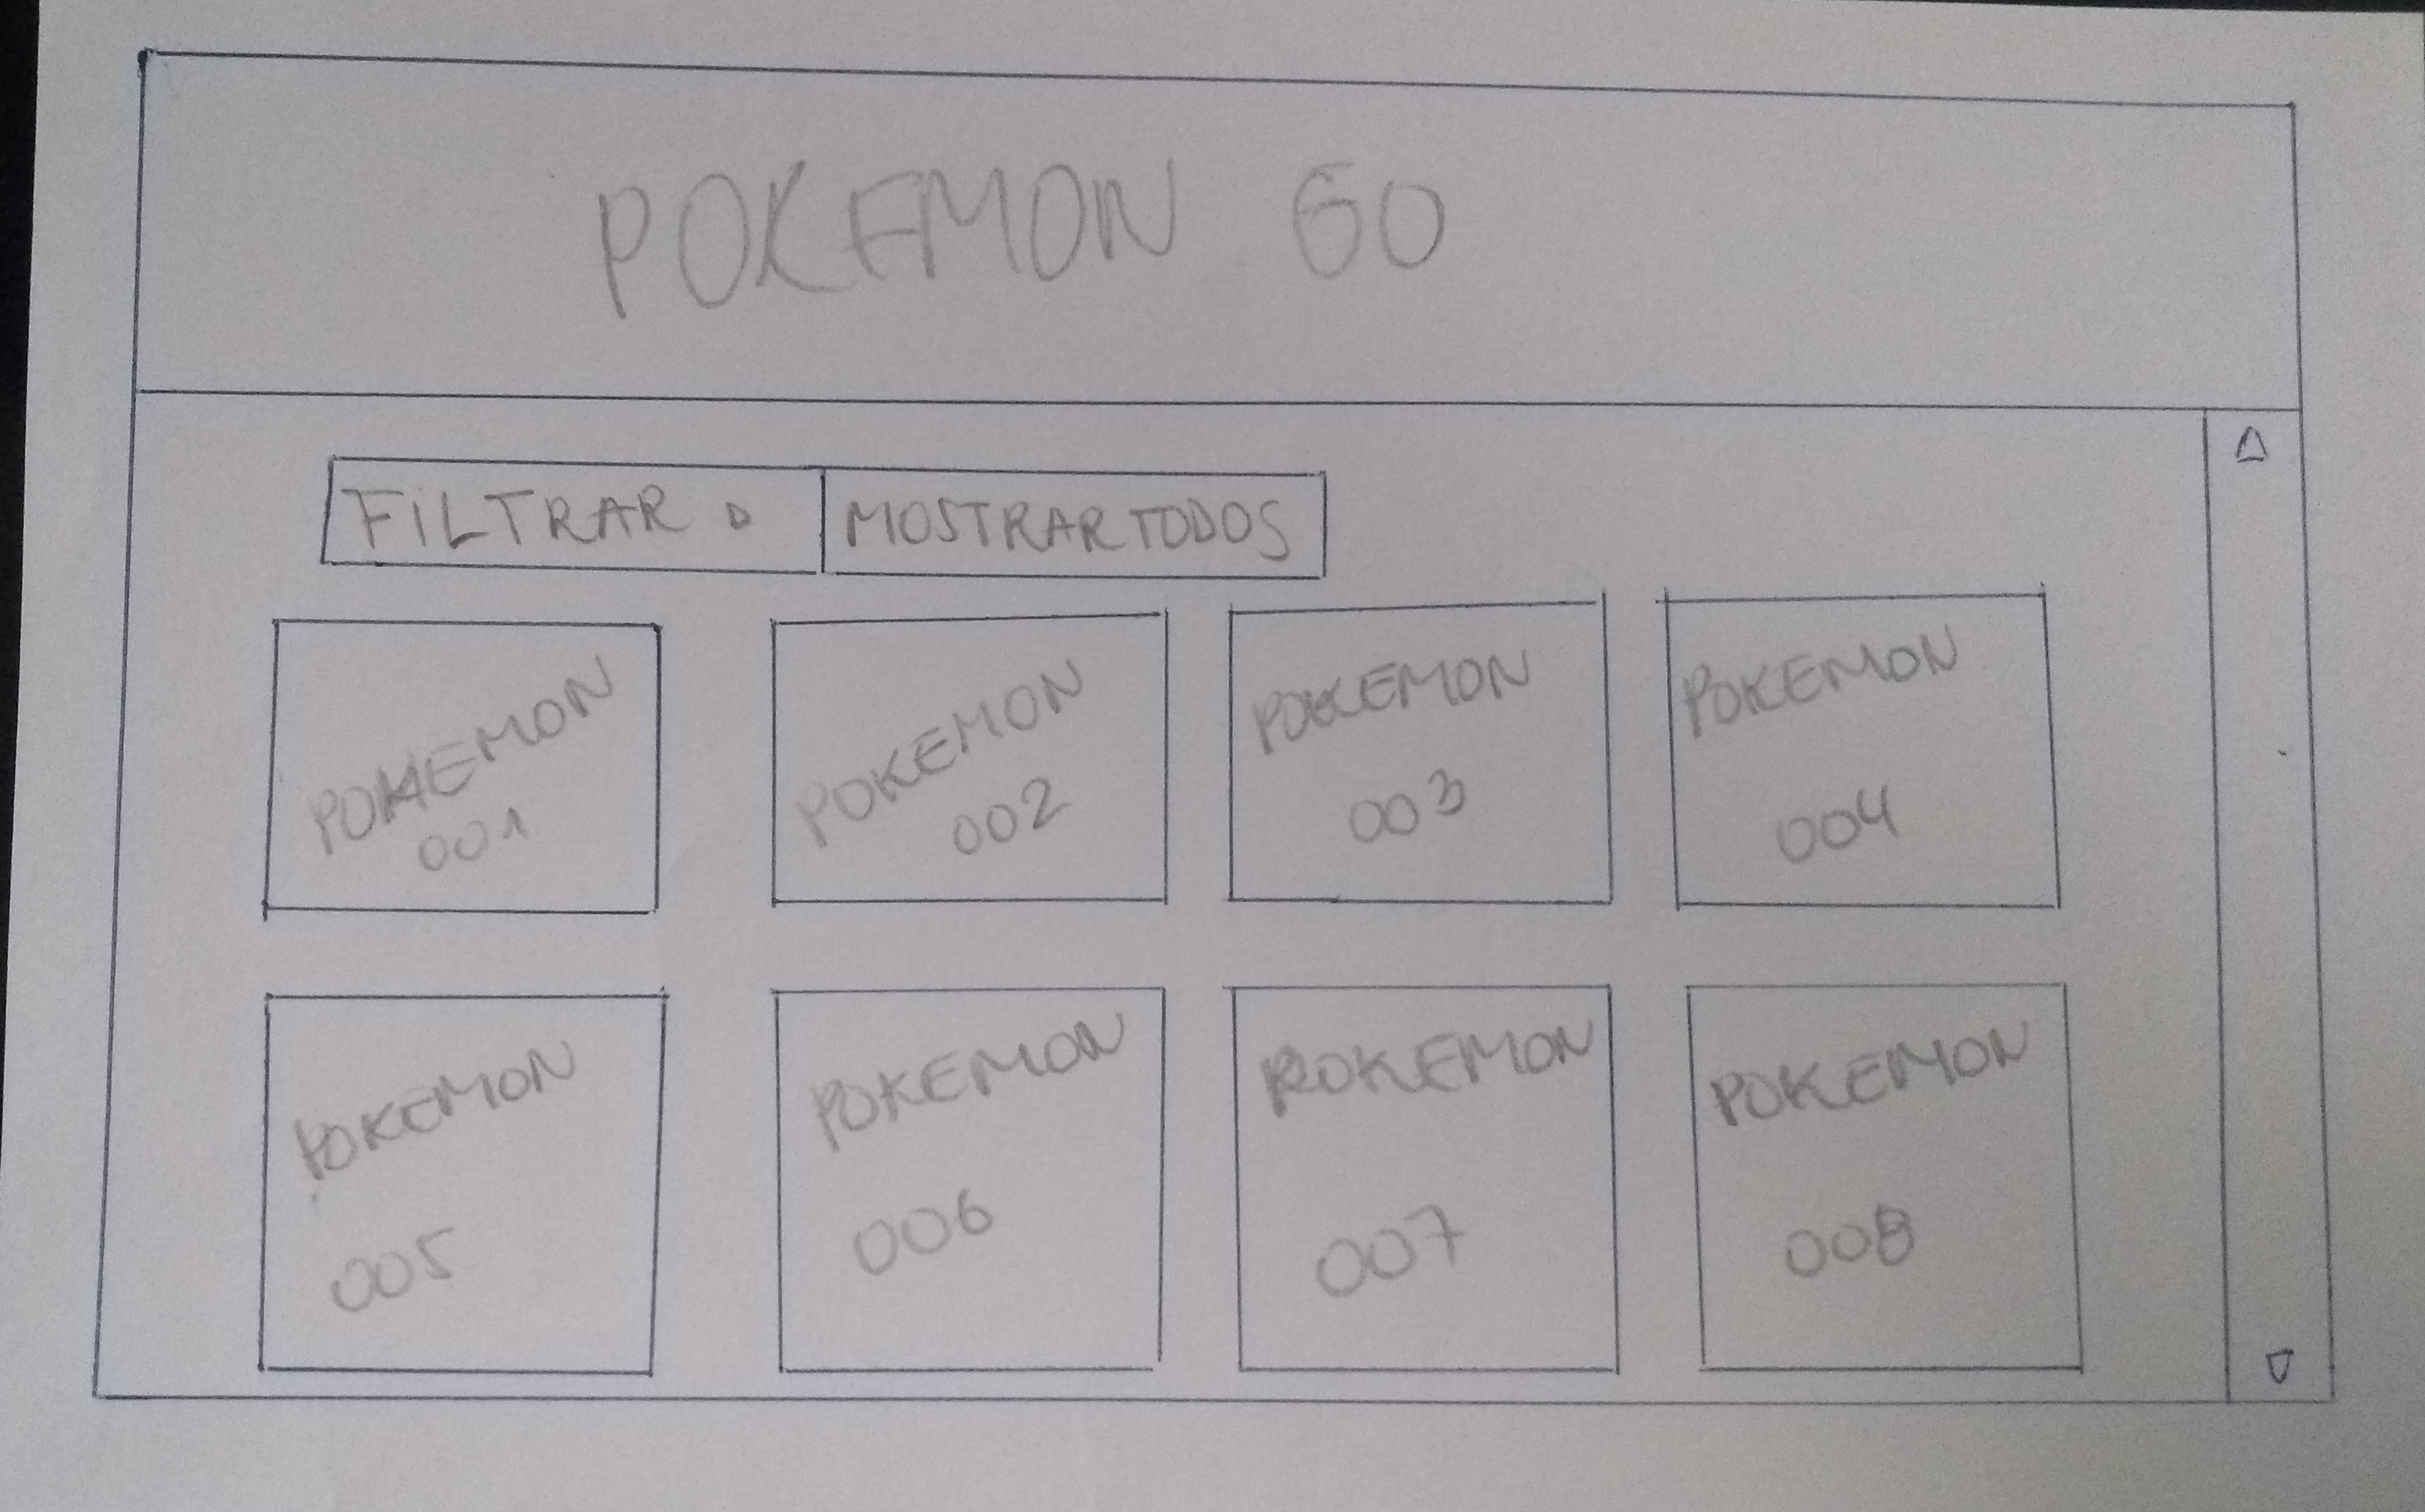 POKEMON GO
FILTRAR MOSTRAR TODOS
POKEMON
001
POKEMON
002
POKEMON
003
POKEMON
004
POKEMON
005
POKEMON
006
POKEMON
007
POKEMON
008